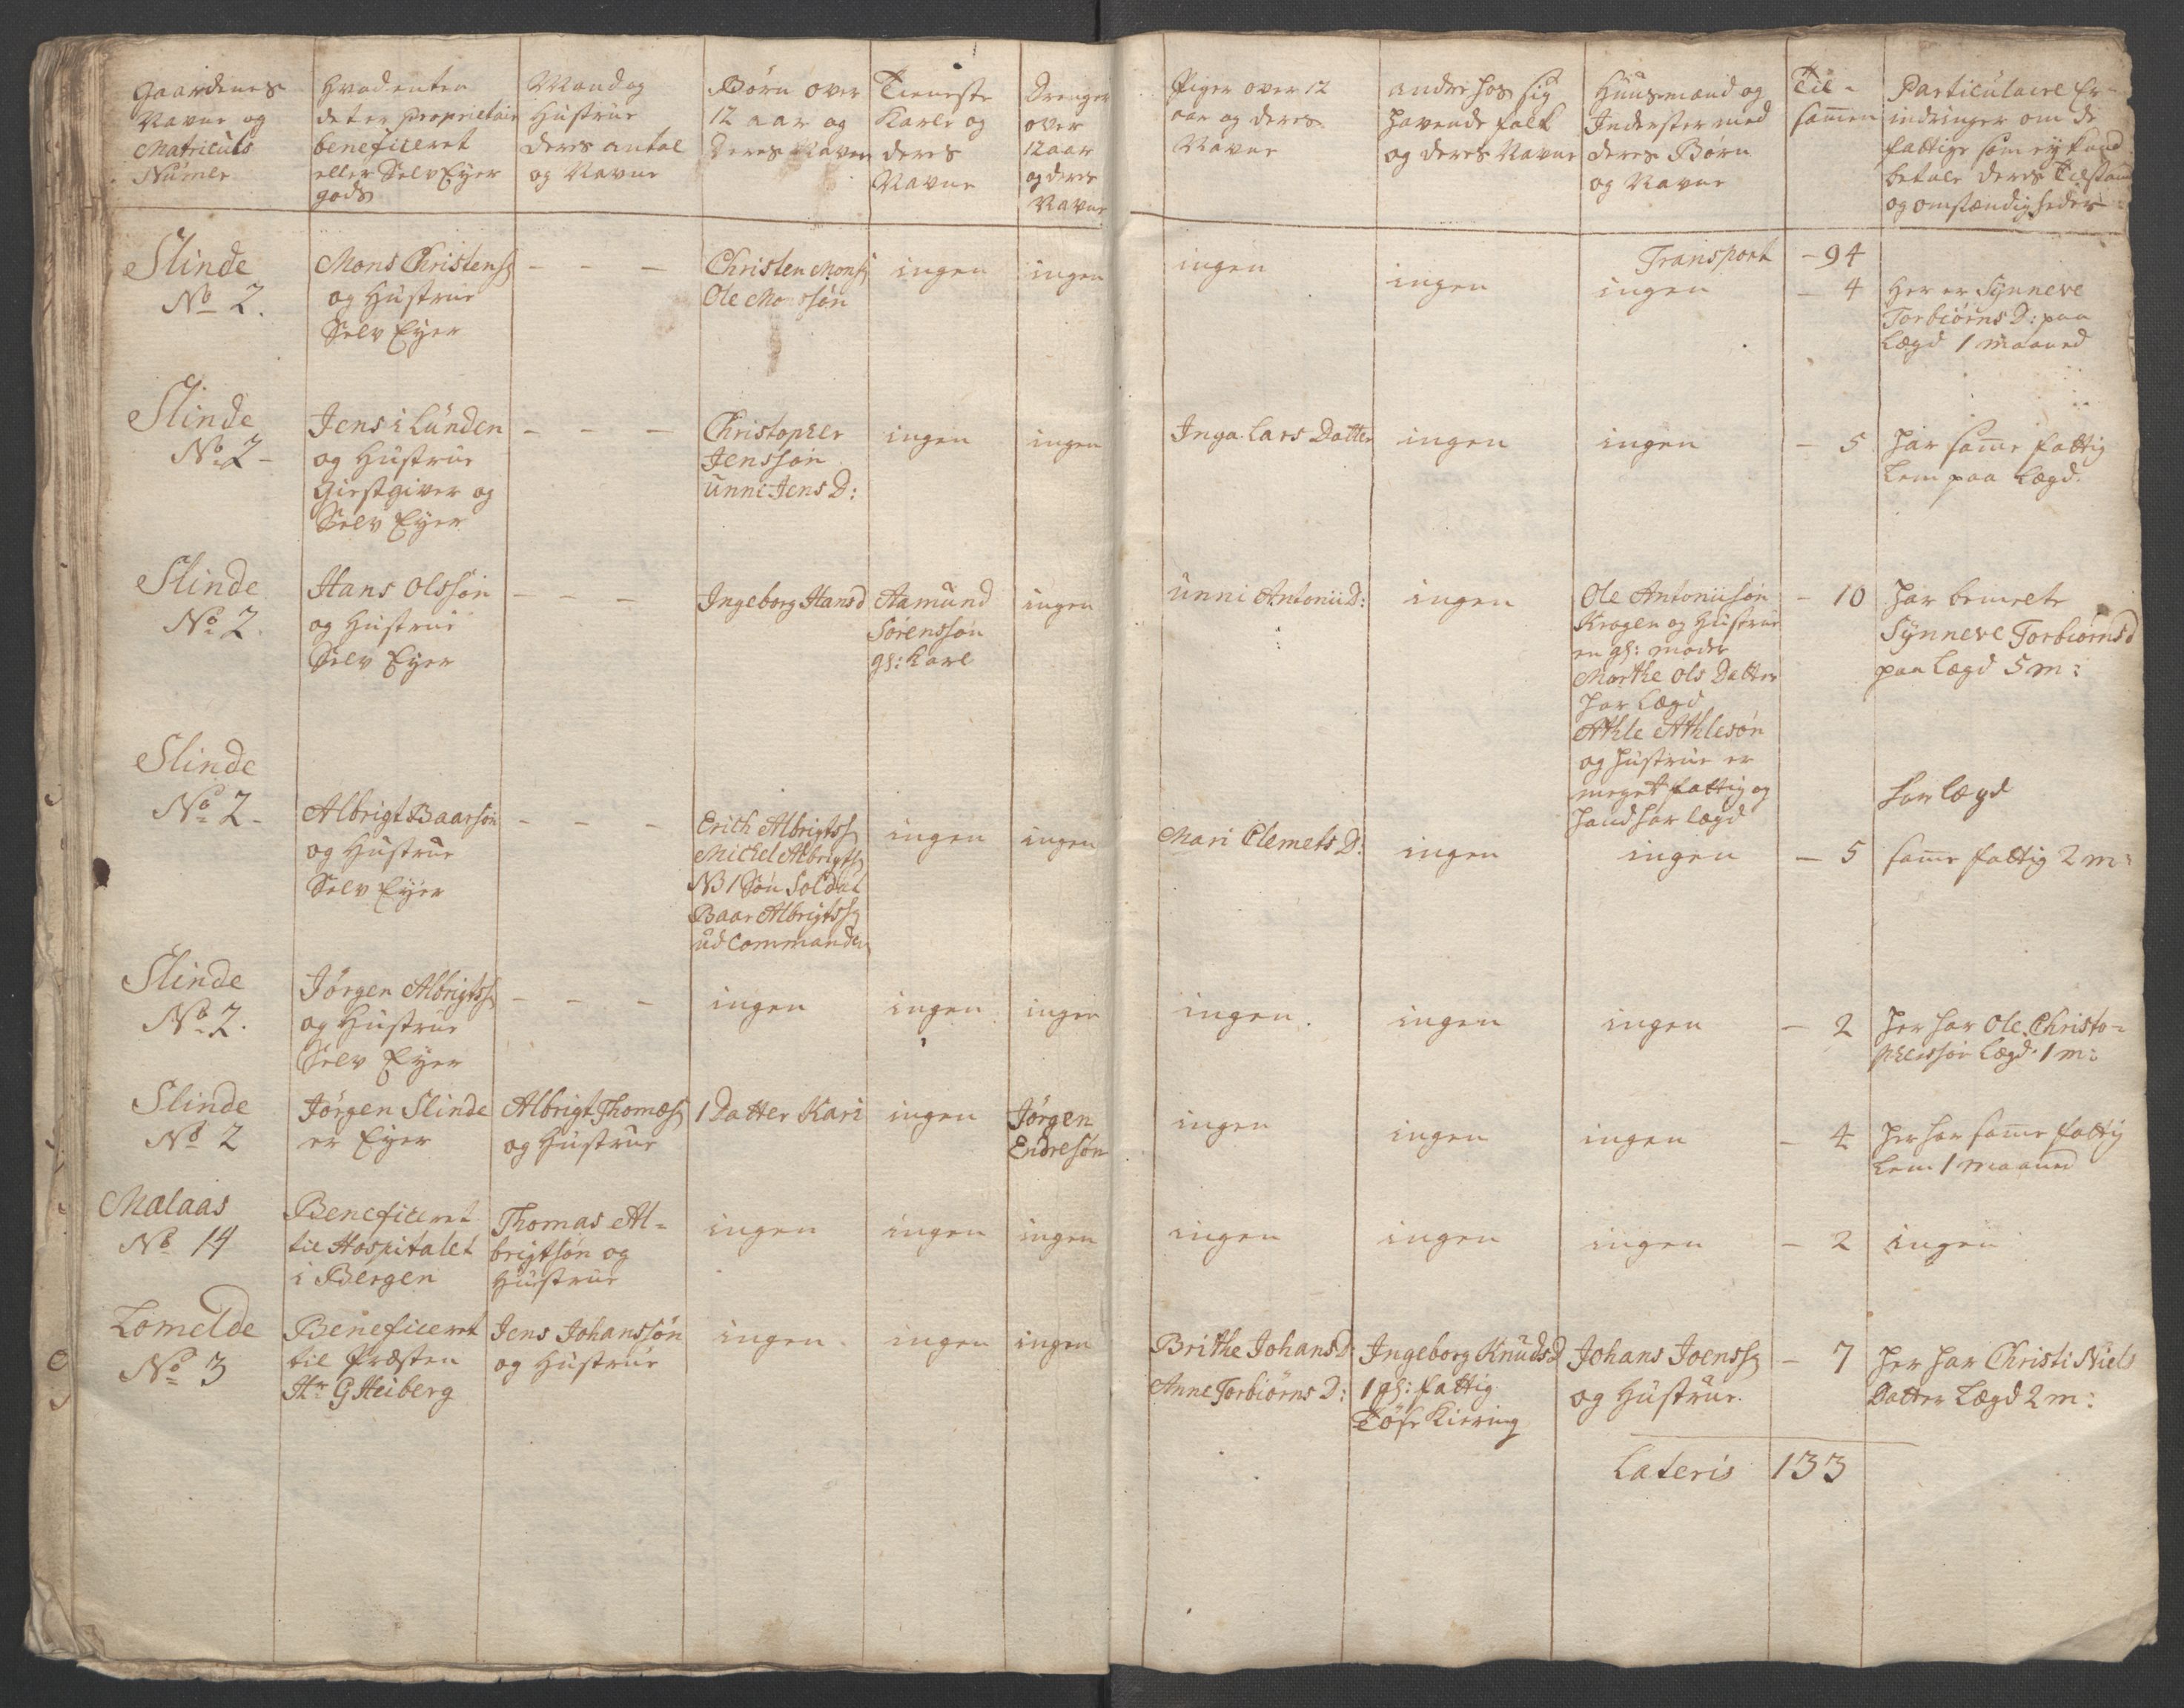 Gaardenes
Navne og
Matriculs
Numer
Hvad enten
det er Proprietair
beneficeret
eller Selv Eyer
gods
Mand og
Hustrue
deres antal
og Navne
Børn over
12 aar og
deres Navne
Tieneste
Karle og
deres
Navne
Drenger
over
12 aar
og deres
Navne
Piger over 12
aar og deres
Navne
andre hos sig
havende folk
og deres Navne
Huusmænd og
Inderster med
deres Børn
og Navne
Til-
samen
Particulaire Er-
indringer om de
fattige som ej kand
betale deres Tilstand
og omstændigheder
Transport - 94
Slinde
No 2.
Mons Christens
og Hustrue
Selv Eyer
- - -
Christen Mons
Ole Monssøn
ingen
ingen
ingen
ingen
ingen
- 4
Her er Synneve
Torbiørns D: paa
Lægd 1 maaned
Slinde
No 2 -
Jens i Lunden
og Hustrue
Giestgiver og
Selv Eyer
- - -
Christopher
Jenssøn
Unni Jens D:
ingen
ingen
Inga Lars Datter
ingen
ingen
- 5
har same fattig
Lem paa Lægd.
Slinde
No 2.
Hans Olssøn
og Hustrue
Selv Eyer
- - -
Ingeborg Hansd
Aamund
Sørenssøn
gl: Karl
ingen
Unni Antonii D:
ingen
Ole Antoniisøn
Krogen og Hustrue
en gl: moder
Marthe Ols Datter
har Lægd
Athle Athlesøn
og Hustrue er
meget fattig og
hand har lægd
- 10
har bemelte
Synneve Torbiørnsd
paa Lægd 5 m:
har lægd
Slinde
No 2 -
Albrigt Baarsøn
og Hustrue
Selv Eyer
- - -
Erich Albrigtss
Michel Albrigts
NB 1 Søn Soldat
Baar Albrigtss
ud Commanderet
ingen
ingen
Mari Clemets D:
ingen
ingen
- 5
same fattig 2 m:
Slinde
No 2.
Jørgen Albrigtss
og Hustrue
Selv Eyer
- - -
ingen
ingen
ingen
ingen.
ingen
ingen
- 2
her har Ole Christo-
phersøn Lægd 1 m:
Slinde
No 2
Jørgen Slinde
er Eyer
Albrigt Thomæs
og Hustrue
1 Datter Kari
ingen
Jørgen
Endresøn
ingen
ingen
ingen
- 4
her har same fattig
Lem 1 maaned
Mælaas
No 14
Beneficeret
til Hospitalet
i Bergen
Thomas Al-
brigtsøn og
Hustrue
ingen
ingen
ingen
ingen
ingen
ingen
- 2
ingen
Lomelde
No 3
Beneficeret
til Præsten
Hr G Heiberg
Jens Johanssøn
og Hustrue
ingen
ingen
ingen
Brithe Johans D:
Anne Torbiørns D:
Ingeborg Knuds D
1 gl: fattig
Tøse Kiering
Johans Joenss
og Hustrue.
- 7
her har Christi Niels
Datter Lægd 2 m:
Lateris 133